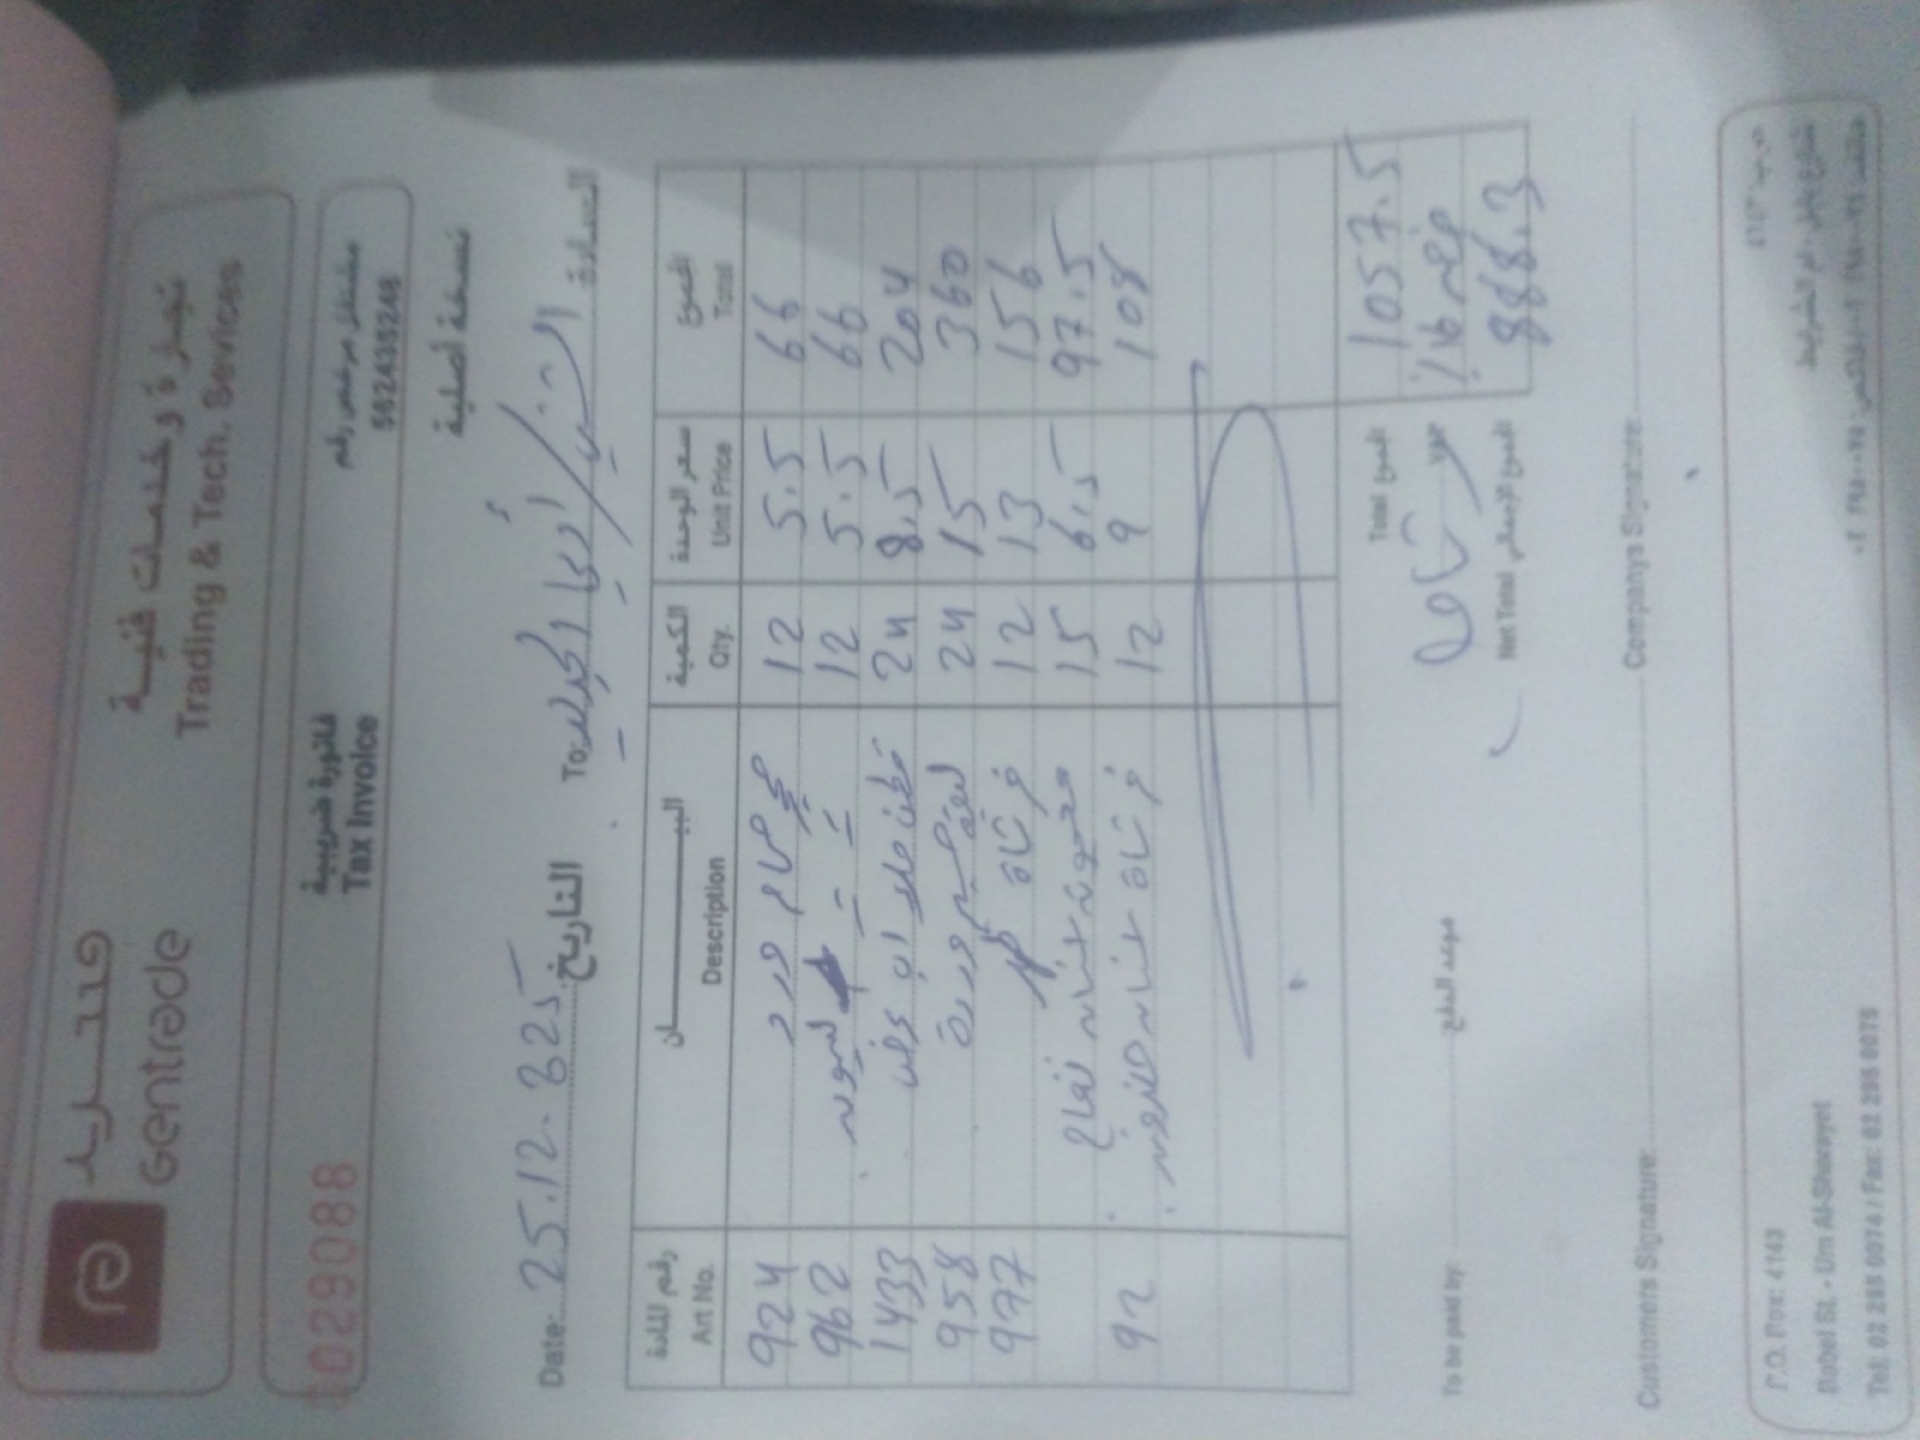 جنتريد
Gentrade
تجارة وخدمات فنية
Trading & Tech. Sevices
0029088
فاتورة ضريبية
Tax Invoice
مشتغل مرخص رقم
562435248
نسخة أصلية
Date: 25.12.2025 التاريخ
To: السادة
رقم المادة البيـــــــان الكمية سعر الوحدة المجموع
Art No. Description Qty. Unit Price Total
924 ورد 12 5.5 66
962 ليمون = = 12 5.5 66
1433 24 8.5 204
958 ليفة وردة 24 15 360
977 فرشاة 12 13 156
معجون اسنان تفاح 15 6.5 97.5
92 فرشاة اسنان 12 9 108
المجموع Total 1057.5
خصم 16%
المجموع الإجمالي Net Total 888.3
To be paid by: موعد الدفع
Customers Signature: Companys Signature:
P.O. Box: 4143
Babel St. - Um Al-Sharayet
شارع بابل - أم الشرايط
Tel: 02 295 0074 / Fax: 02 295 0075